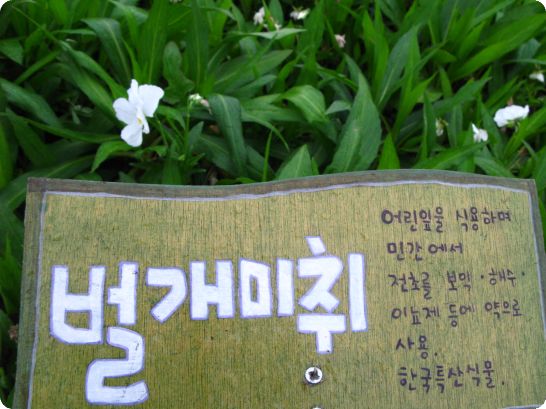 벌개미취
어린잎을 식용하며
민간에서
전초를 보익·해수·
이뇨제 등에 약으로
사용.
한국특산식물.